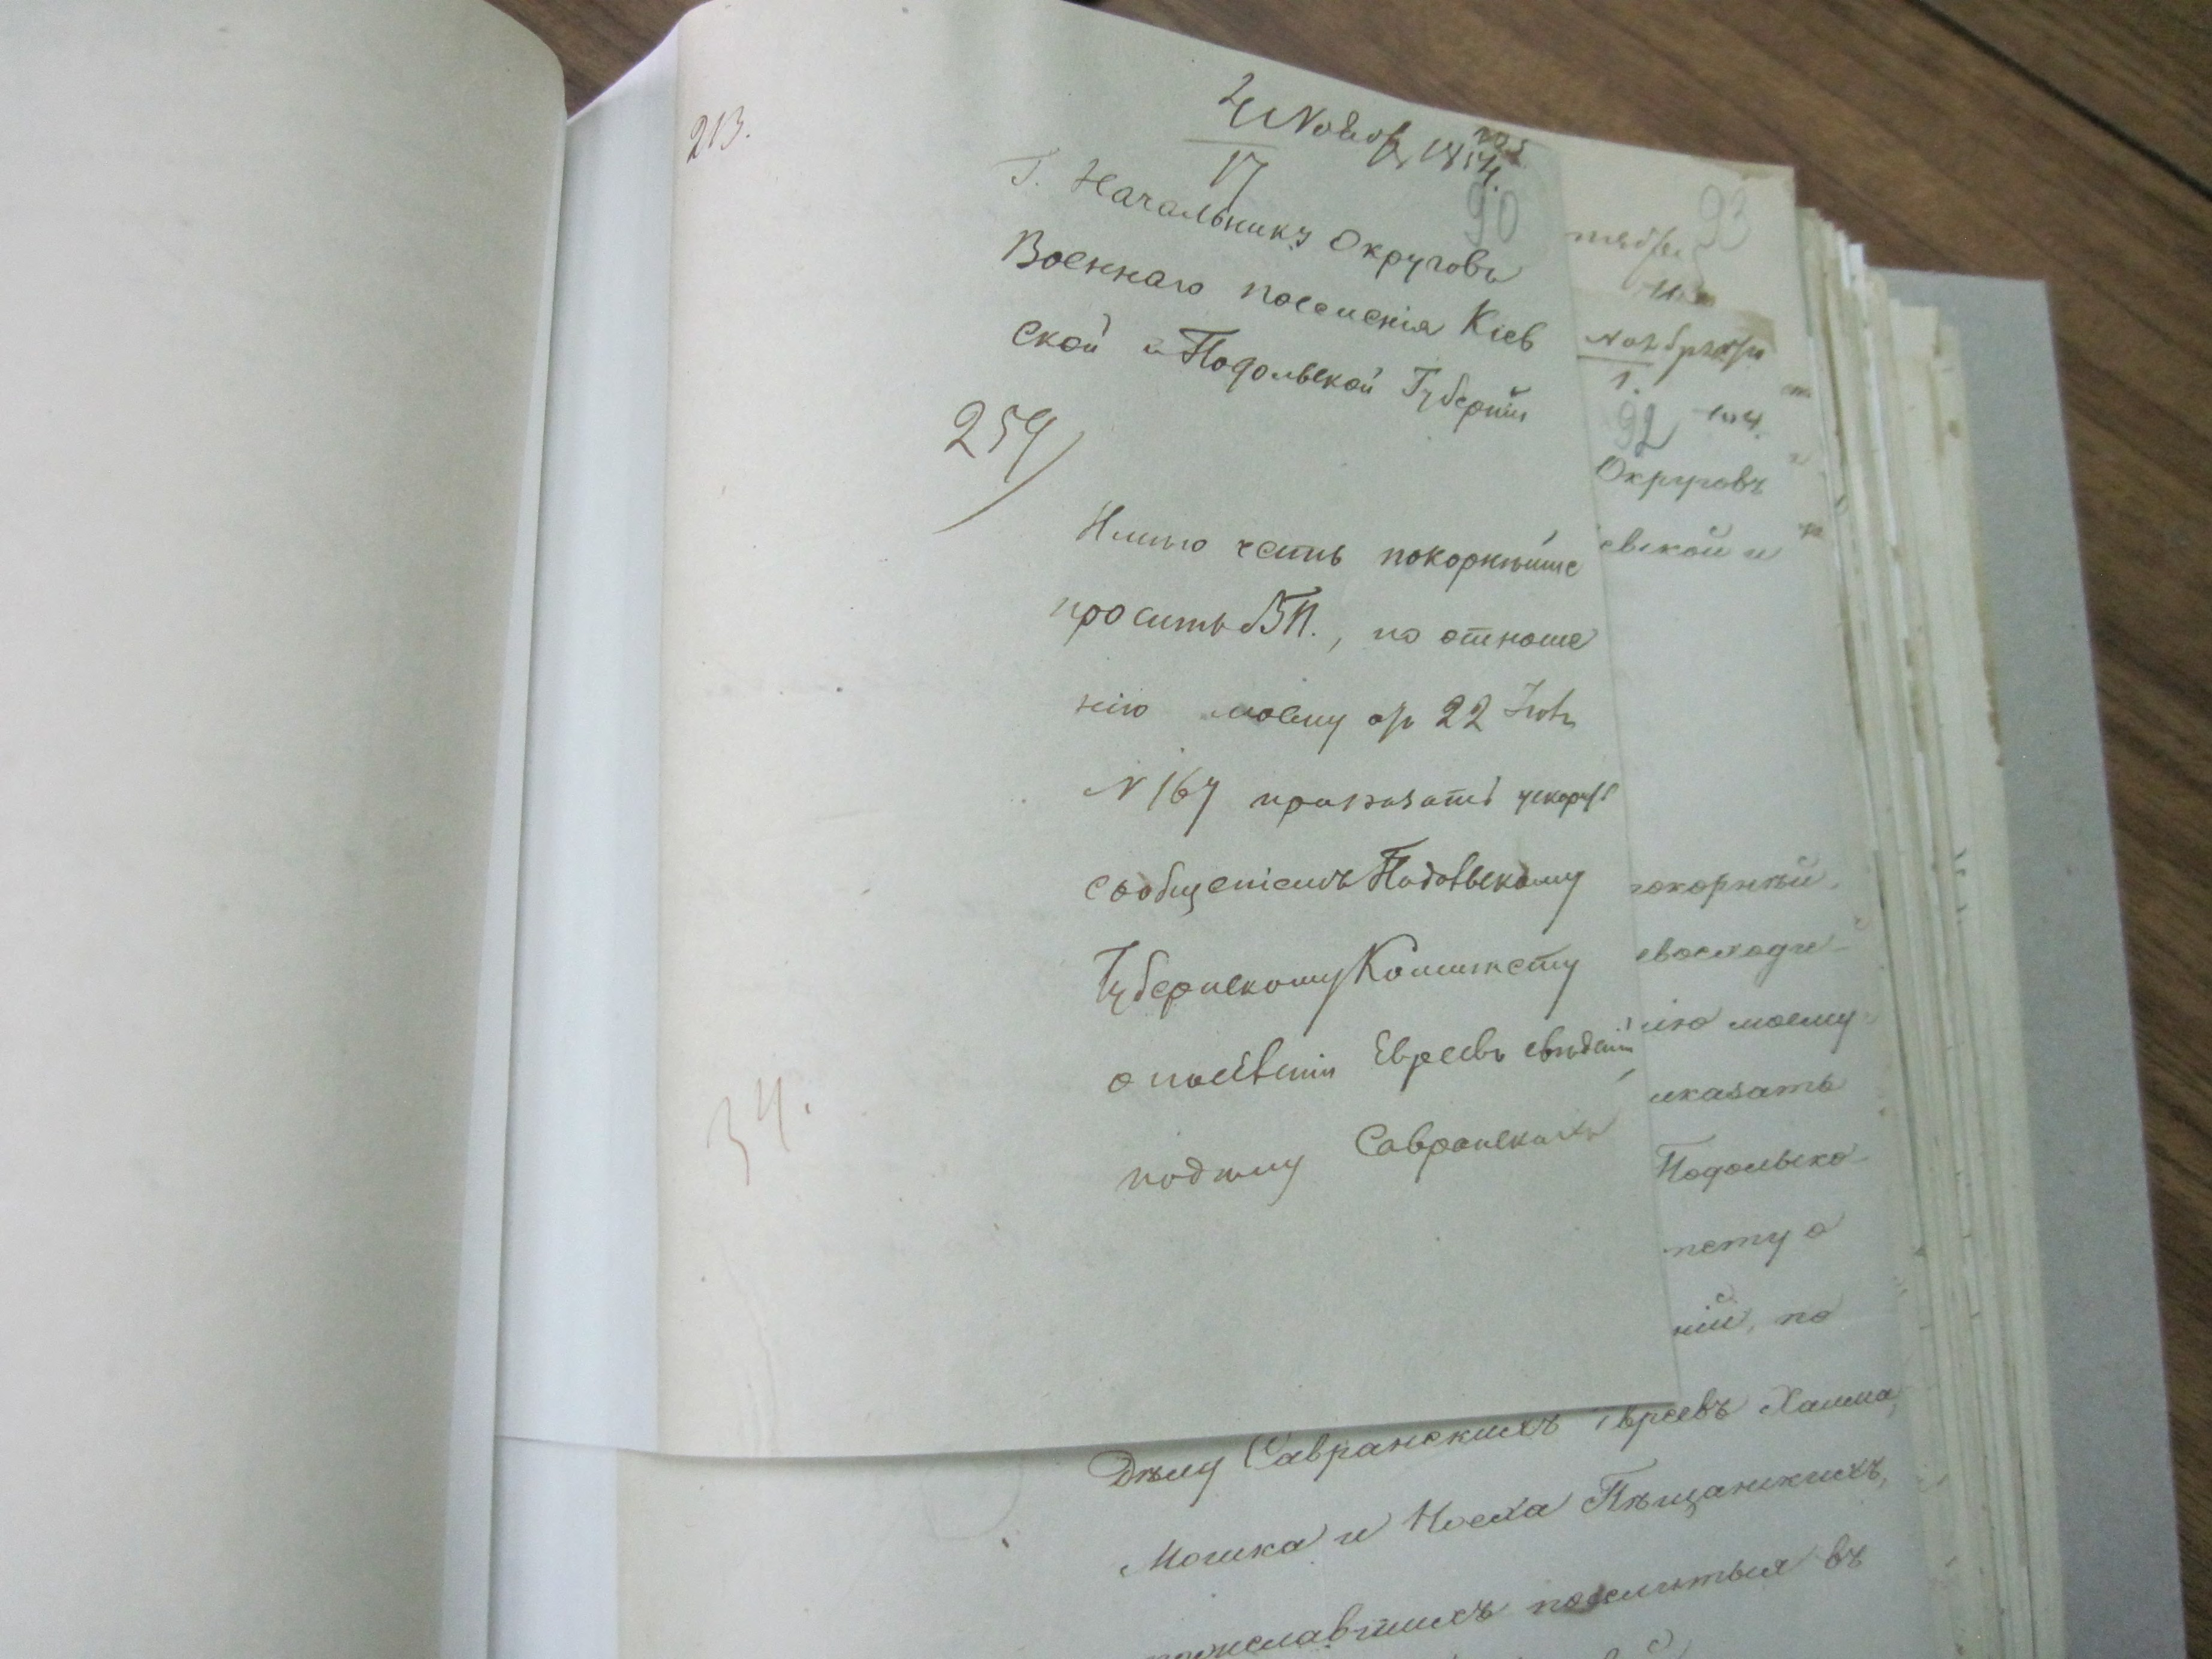 213.
17
90
Г. Начальнику Округовъ
Военнаго поселенія Кіев
ской и Подольской Губерній
259
Имѣю честь покорнѣйше
просить ВП., по отноше
нію моему от 22
N 167 приказать ускорить
сообщеніемъ Подольскому
Губернскому Комитету
о поселеніи Евреевъ свѣденій
по дѣлу Савранскихъ
34.
93
Ноября
1.
92
Округовъ
евской и
покорнѣй
евосходи-
нію моему
иказать
Подольско-
тету о
ній, по
Дѣлу Савранскихъ Евреевъ Хаима,
Мошка и Носка Пѣщанскихъ,
пожелавшихъ поселиться въ